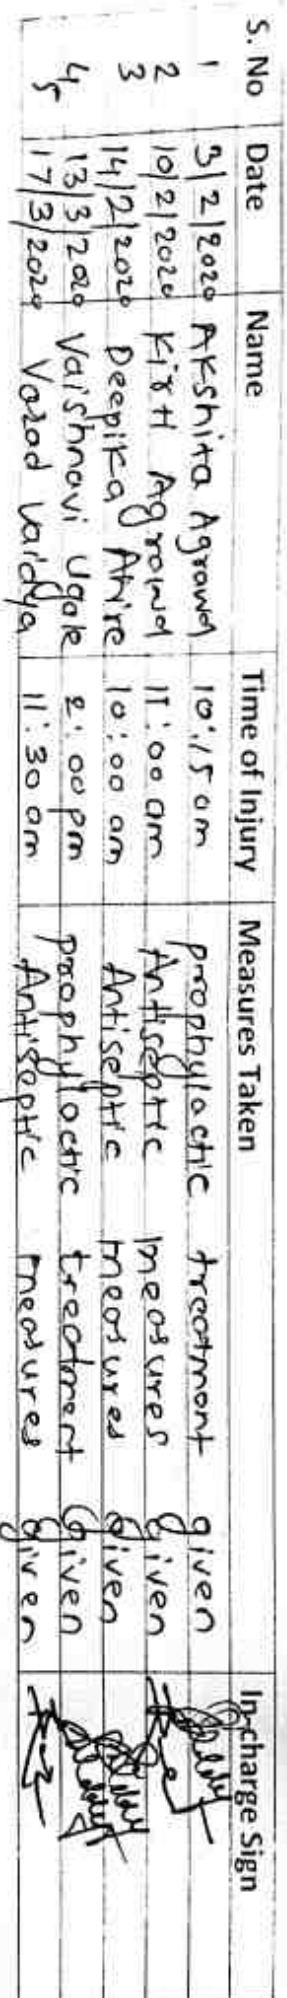 S. No Date Name Time of Injury Measures Taken In-charge Sign
1 3/2/2020 Akshita Agrawal 10:15 am prophylactic treatment given
2 10/2/2020 Kirti Agrawal 11:00 am Antiseptic measures given
3 14/2/2020 Deepika Ahire 10:00 am Antiseptic measures given
4 13/3/2020 Vaishnavi Ugale 2:00 pm prophylactic treatment Given
5 17/3/2020 Varad Vaidya 11:30 am Antiseptic measures given